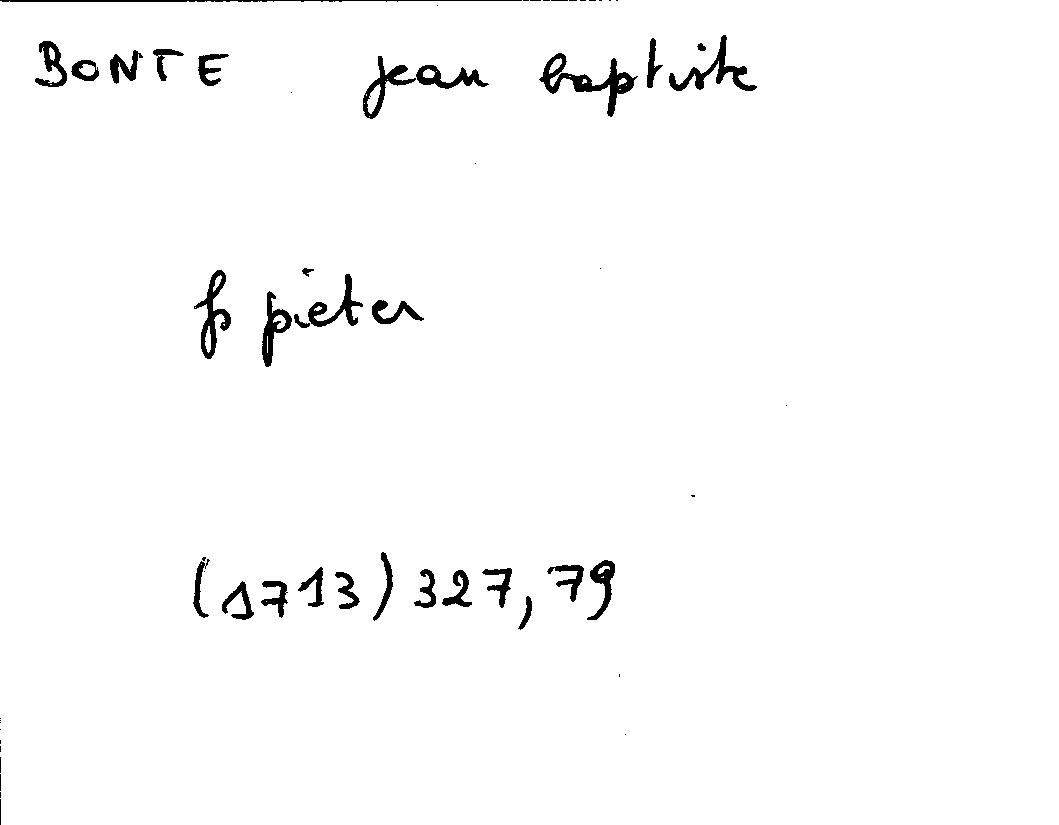 BONTE jean baptiste
fs pieter
(1713) 327, 79